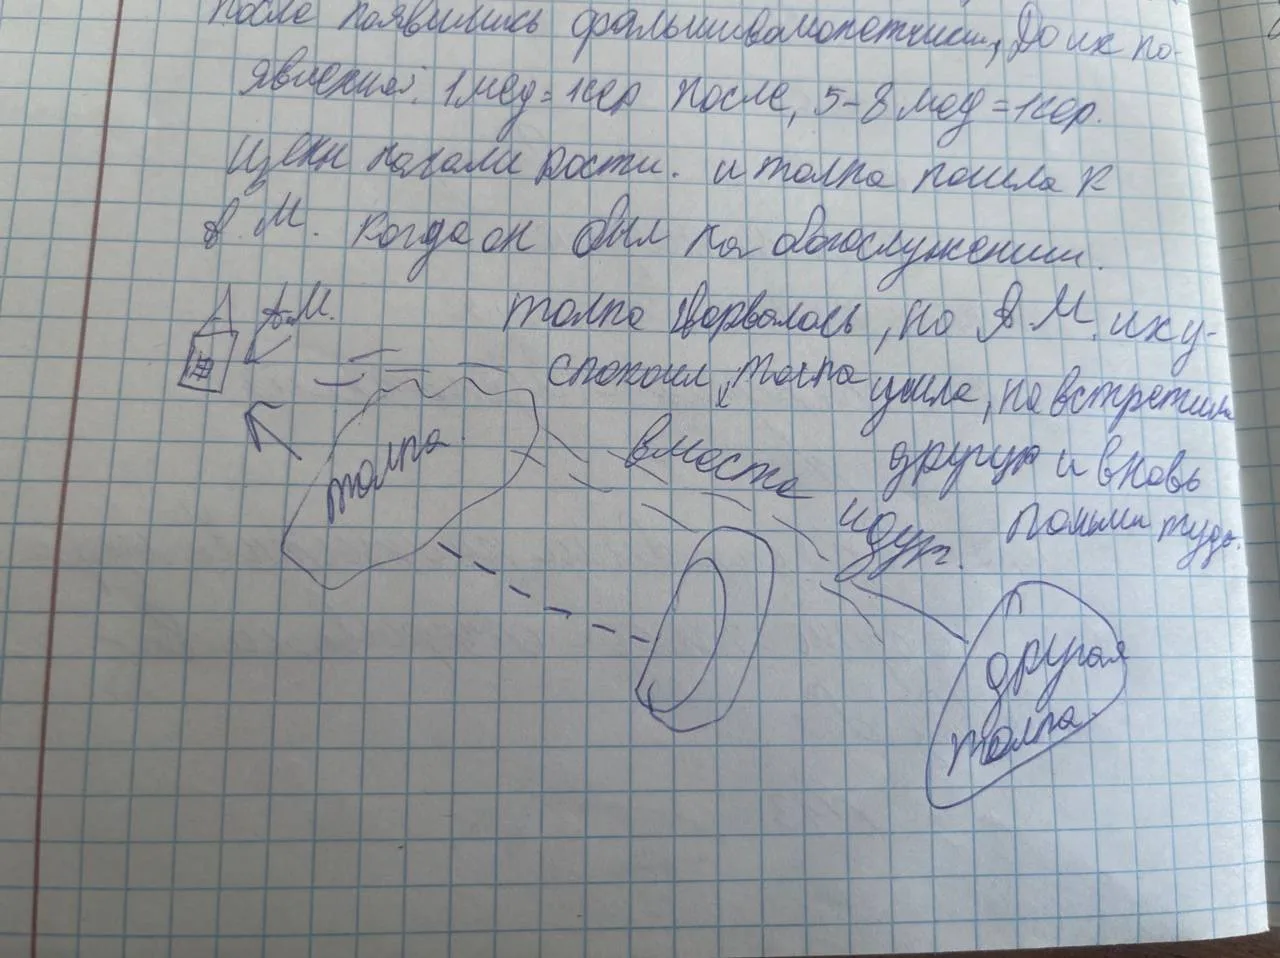 после появились фальшивомонетчики, До их по-
явления: 1 мед = 1 сер после, 5-8 мед = 1 сер.
Цены начали рости. и толпа пошла к
А.М. когда он был на богослужении.
А.М.
толпа ворвалась, но А.М. их у-
спокоил, толпа ушла, но встретила
другую и вновь
пошли туда.
вместе
идут.
толпа
другая
толпа